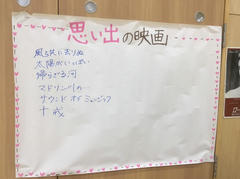 思い出の映画
風と共に去りぬ
太陽がいっぱい
帰らざる河
マドリングの…
サウンド オブ ミュージック
十戒